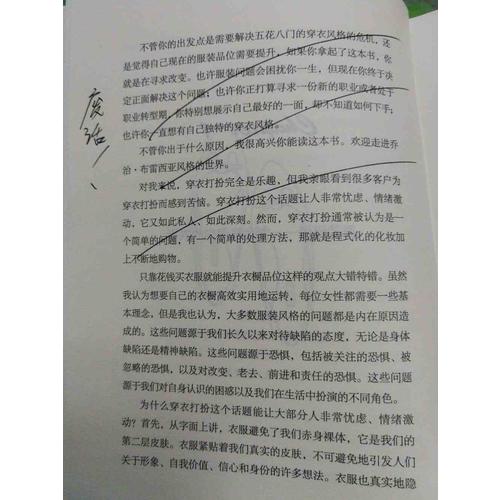 不管你的出发点是需要解决五花八门的穿衣风格的危机，还
是觉得自己现在的服装品位需要提升，如果你拿起了这本书，你
就是在寻求改变。也许服装问题会困扰你一生，但现在你终于决
定正面解决这个问题；也许你正打算寻求一份新的职业或者处于
职业转型期，你特别想展示自己最好的一面，却不知道如何下手；
也许你一直想有自己独特的穿衣风格。
不管你出于什么原因，我很高兴你能读这本书。欢迎走进乔
治·布雷西亚风格的世界。
对我来说，穿衣打扮完全是乐趣，但我亲眼看到很多客户为
穿衣打扮而感到苦恼。穿衣打扮这个话题让人非常忧虑、情绪激
动，它又如此私人、如此深刻。然而，穿衣打扮通常被认为是一
个简单的问题，有一个简单的处理方法，那就是程式化的化妆加
上不断地购物。
只靠花钱买衣服就能提升衣橱品位这样的观点大错特错。虽然
我认为想要自己的衣橱高效实用地运转，每位女性都需要一些基
本理念，但是我也认为，大多数服装风格的问题都是内在原因造
成的。这些问题源于我们长久以来对待缺陷的态度，无论是身体
缺陷还是精神缺陷。这些问题源于恐惧，包括被关注的恐惧、被
忽略的恐惧，以及对改变、老去、前进和责任的恐惧。这些问题
源于我们对自身认识的困惑以及我们在生活中扮演的不同角色。
为什么穿衣打扮这个话题能让大部分人非常忧虑、情绪激
动？首先，从字面上讲，衣服避免了我们赤身裸体，它是我们的
第二层皮肤。衣服紧贴着我们真实的皮肤，不可避免地引发人们
关于形象、自我价值、信心和身份的许多想法。衣服也真实地隐
废话